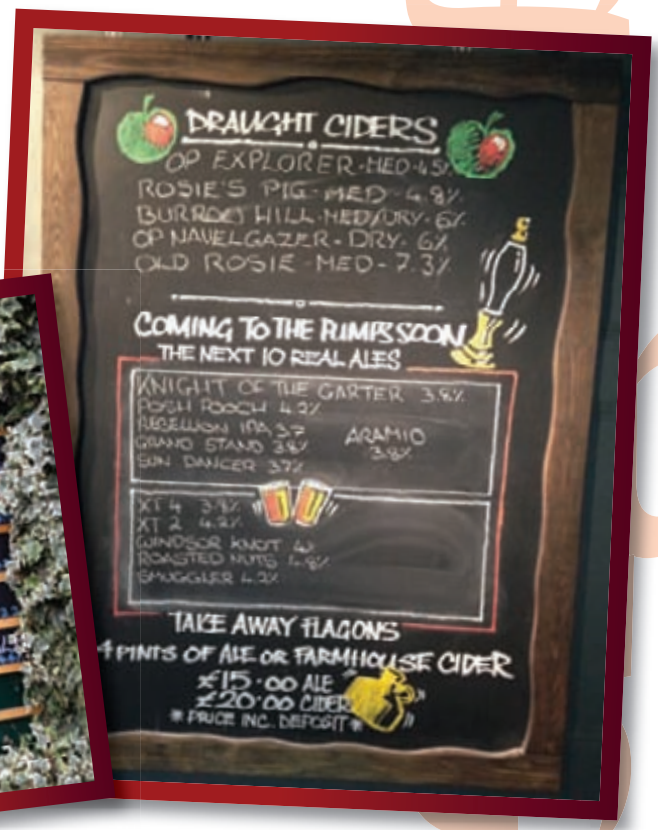 DRAUGHT CIDERS
OP EXPLORER-MED-4.5%
ROSIE'S PIG-MED-4.8%
BURROW HILL-MED/DRY-6%
OP NAVELGAZER-DRY-6%
OLD ROSIE-MED-7.3%
£
COMING TO THE PUMPS SOON
THE NEXT 10 REAL ALES
KNIGHT OF THE GARTER 3.8%
POSH POOCH 4.2%
REBELLION IPA 3.7
GRAND STAND 3.8%
SUN DANCER 3.7%
ARAMIO
3.8%
XT 4 3.8%
XT 2 4.2%
WINDSOR KNOT 4%
ROASTED NUTS 4.8%
SMUGGLER 4.2%
TAKE AWAY FLAGONS
4 PINTS OF ALE OR FARMHOUSE CIDER
£15.00 ALE
£20.00 CIDER
* PRICE INC. DEPOSIT *